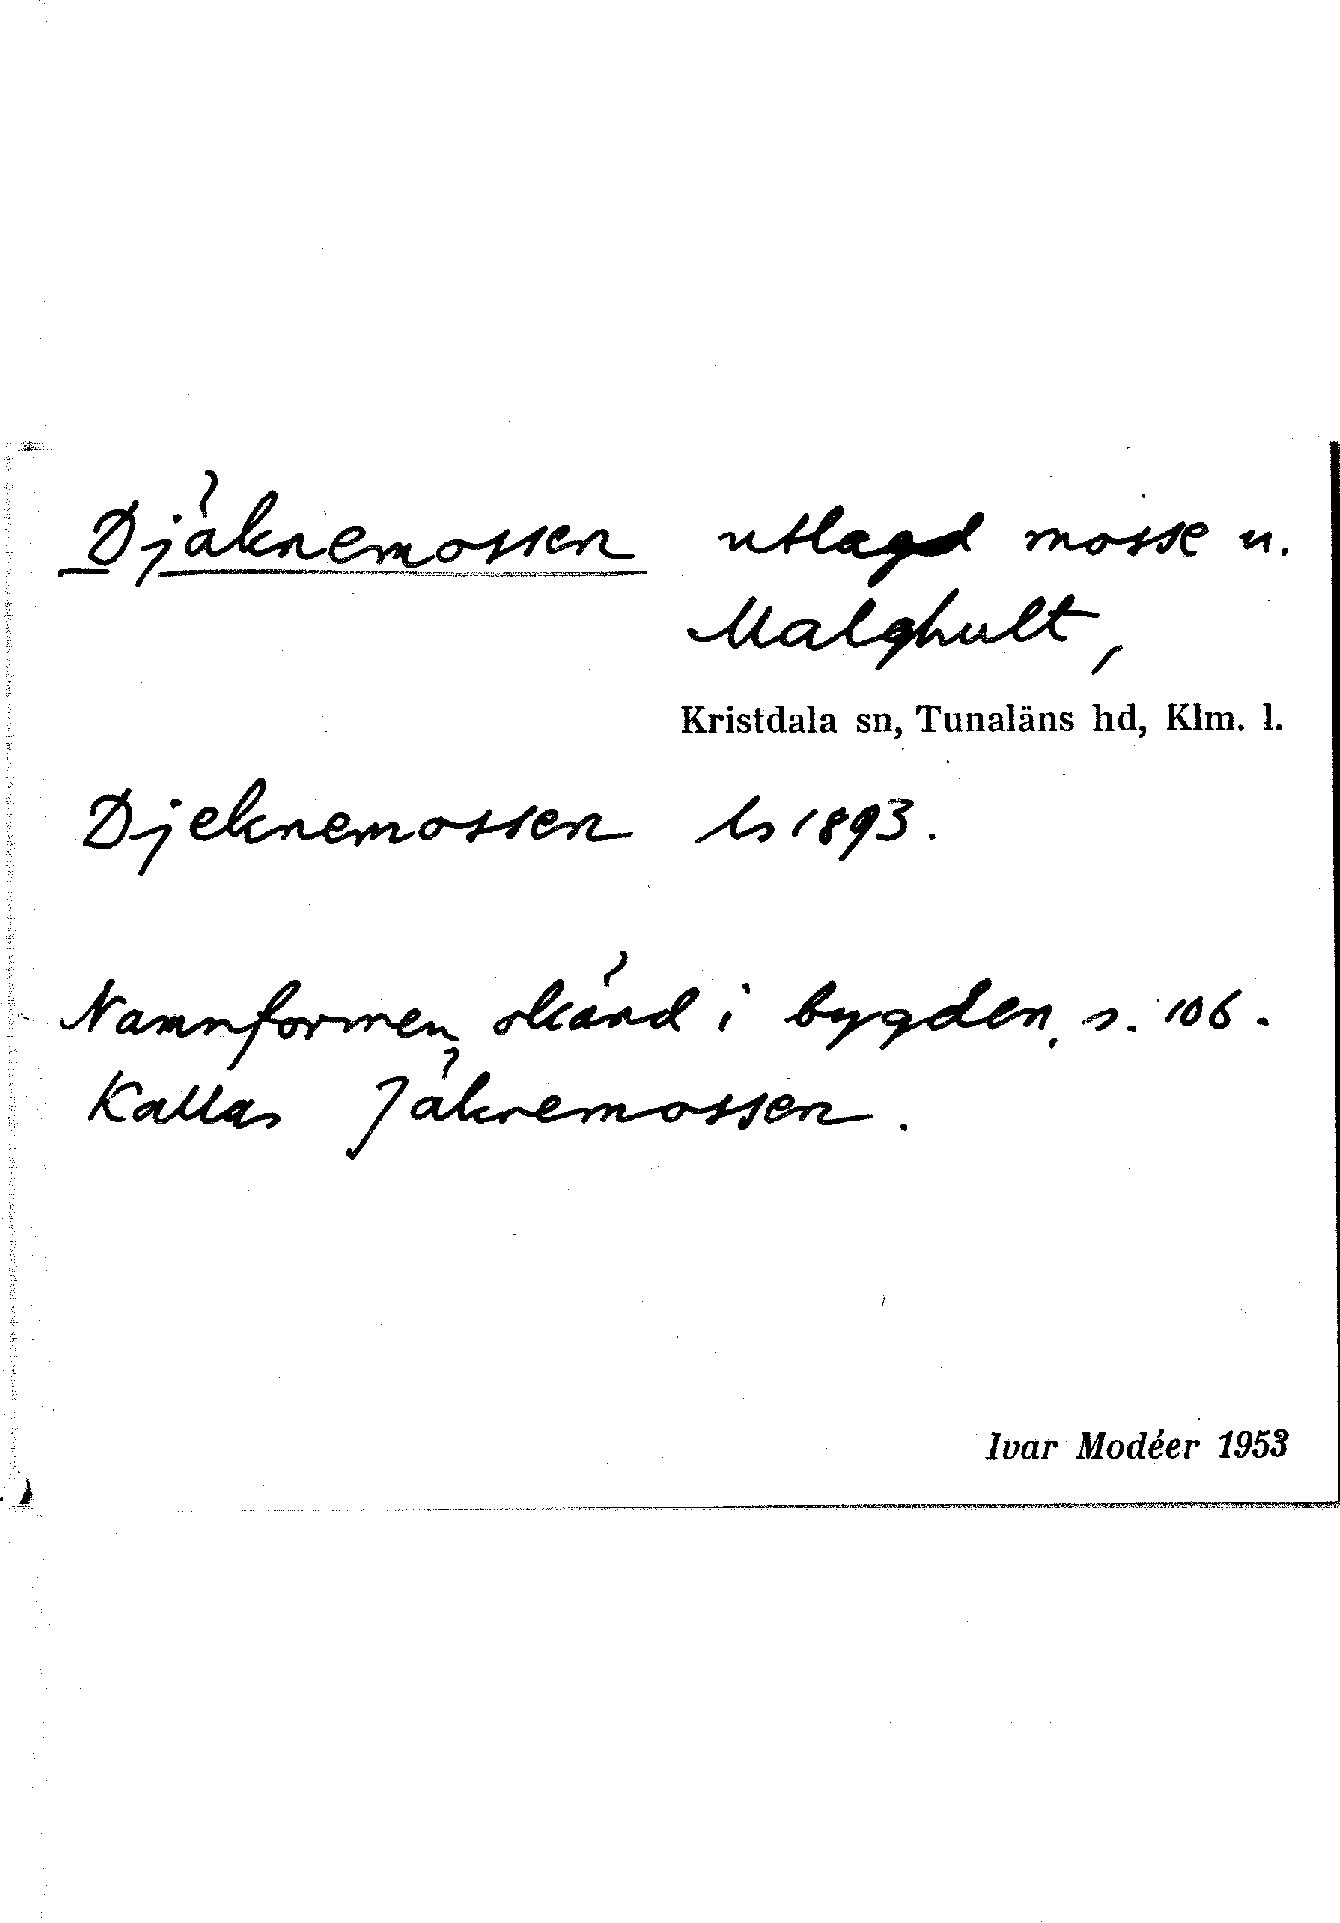 Djäknemossen utlagd mosse u.
Malghult,
Kristdala sn, Tunaläns hd, Klm. l.
Djeknemossen ls 1893.
Namnformen okänd i bygden, s. 106.
Kallas Jäknemossen.
Ivar Modéer 1953